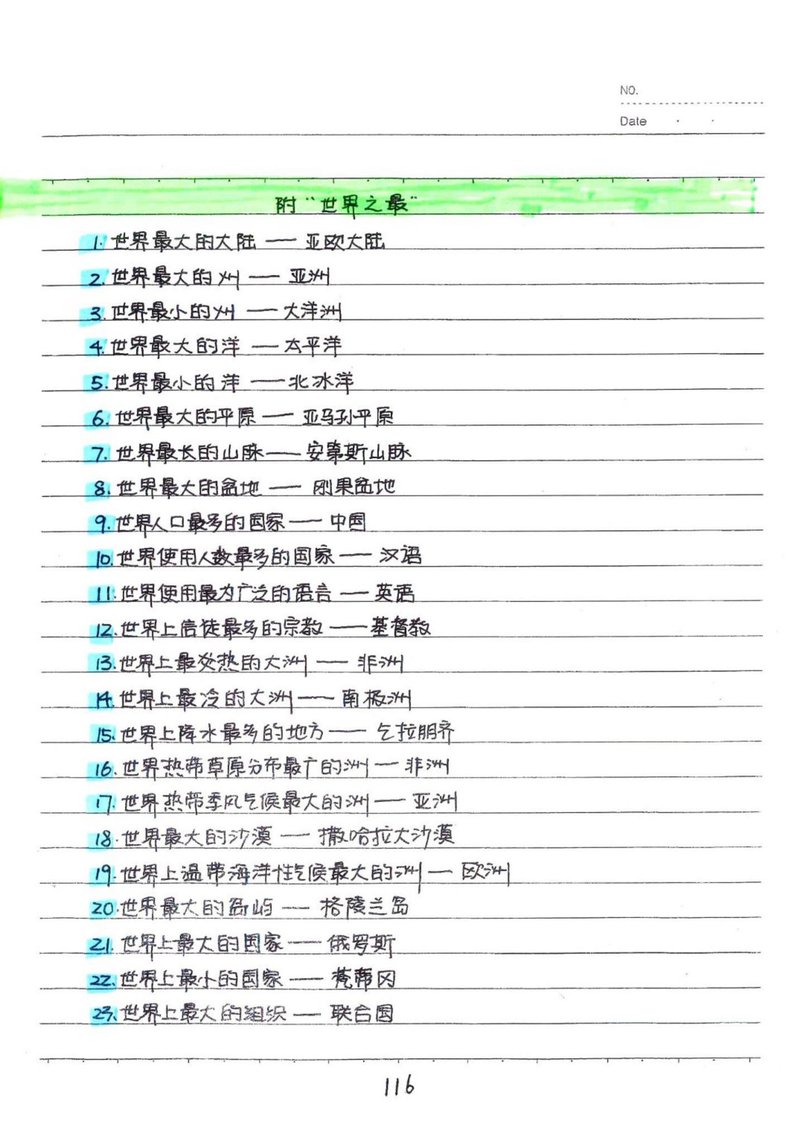 NO.
Date
附"世界之最"
1. 世界最大的大陆 —— 亚欧大陆
2. 世界最大的州 —— 亚洲
3. 世界最小的州 —— 大洋洲
4. 世界最大的洋 —— 太平洋
5. 世界最小的洋 —— 北冰洋
6. 世界最大的平原 —— 亚马孙平原
7. 世界最长的山脉 —— 安第斯山脉
8. 世界最大的盆地 —— 刚果盆地
9. 世界人口最多的国家 —— 中国
10. 世界使用人数最多的国家 —— 汉语
11. 世界使用最为广泛的语言 —— 英语
12. 世界上信徒最多的宗教 —— 基督教
13. 世界上最炎热的大洲 —— 非洲
14. 世界上最冷的大洲 —— 南极洲
15. 世界上降水最多的地方 —— 乞拉朋齐
16. 世界热带草原分布最广的洲 — 非洲
17. 世界热带季风气候最大的洲 — 亚洲
18. 世界最大的沙漠 —— 撒哈拉大沙漠
19. 世界上温带海洋性气候最大的洲 — 欧洲
20. 世界最大的岛屿 —— 格陵兰岛
21. 世界上最大的国家 —— 俄罗斯
22. 世界上最小的国家 —— 梵蒂冈
23. 世界上最大的组织 —— 联合国
116